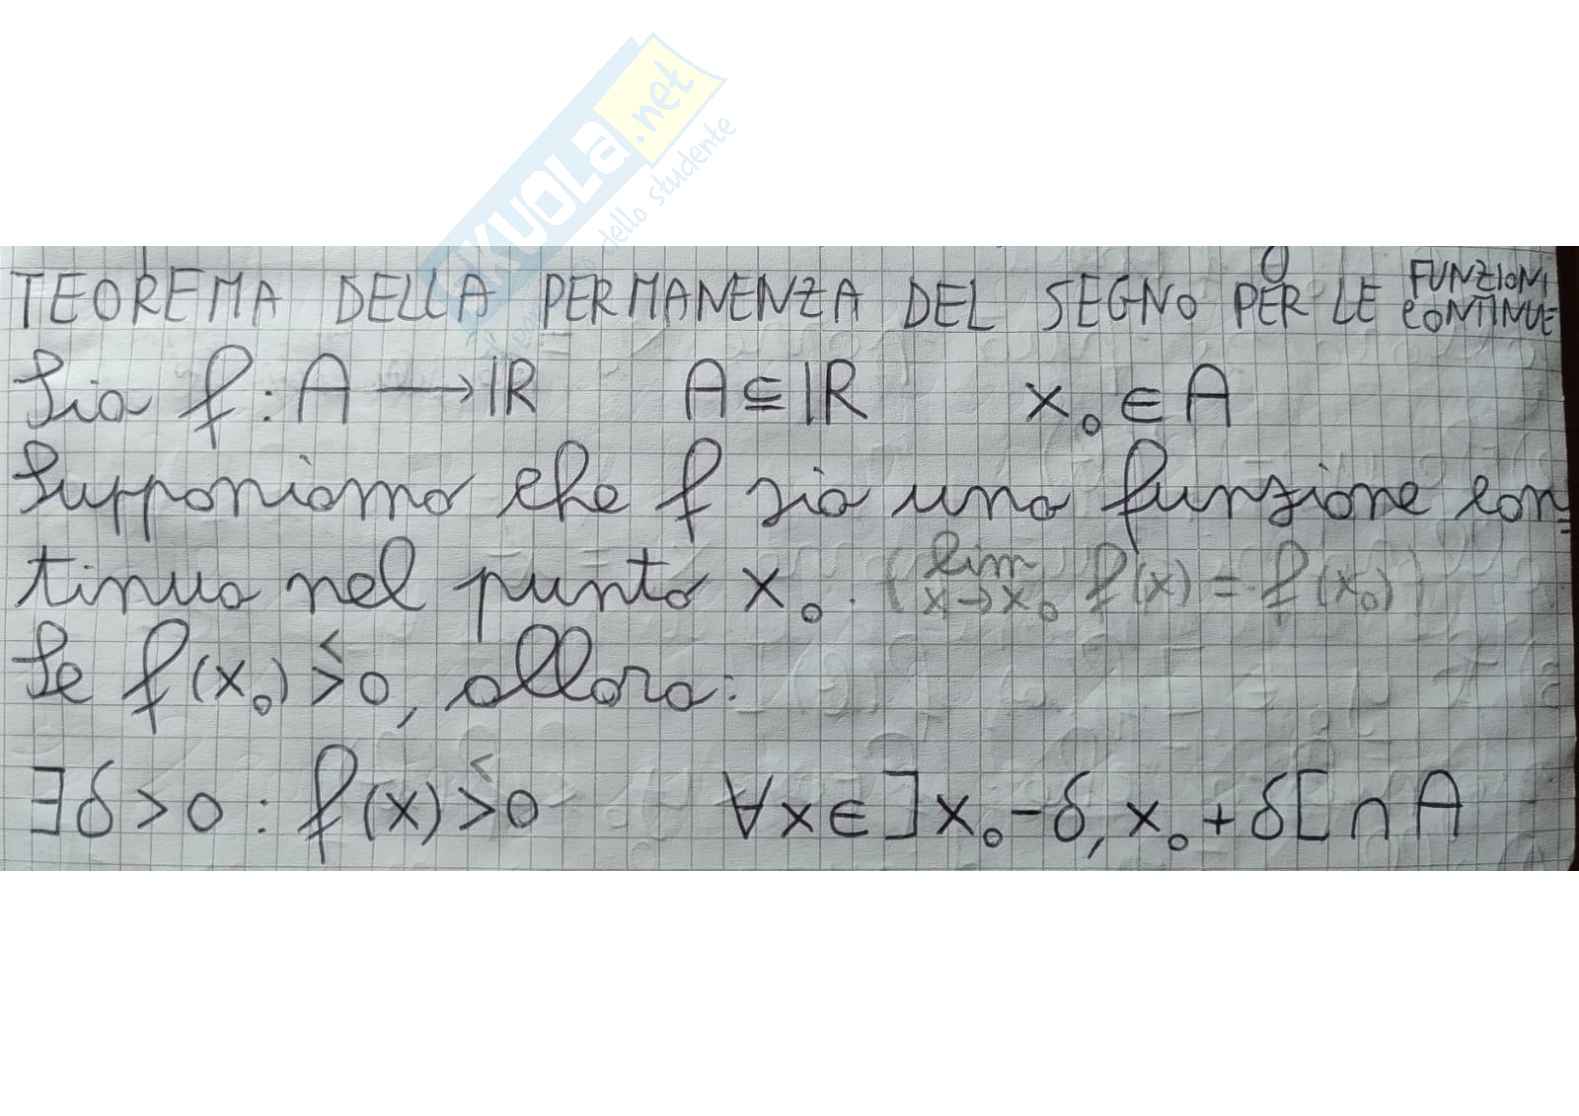 SKUOLA.net
dello studente
TEOREMA DELLA PERMANENZA DEL SEGNO PER LE FUNZIONI CONTINUE
Sia f : A ⟶ ℝ A ⊆ ℝ x₀ ∈ A
Supponiamo che f sia una funzione con=
tinua nel punto x₀. (lim x→x₀ f(x) = f(x₀))
Se f(x₀) ≷ 0, allora:
∃δ > 0 : f(x) ≷ 0 ∀x ∈ ]x₀ - δ, x₀ + δ[ ∩ A